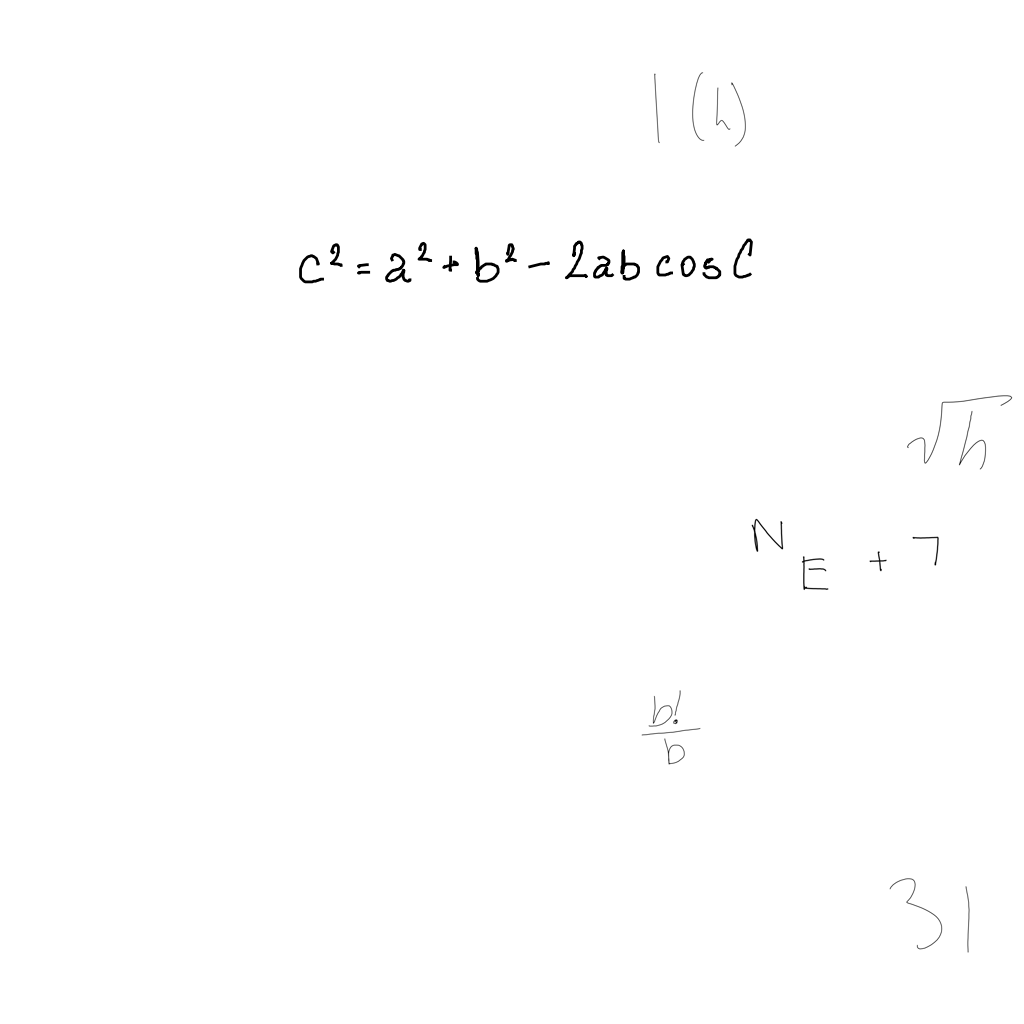 1 (h)
c² = a² + b² - 2ab cos C
√h
N_E + 7
b!/b
31